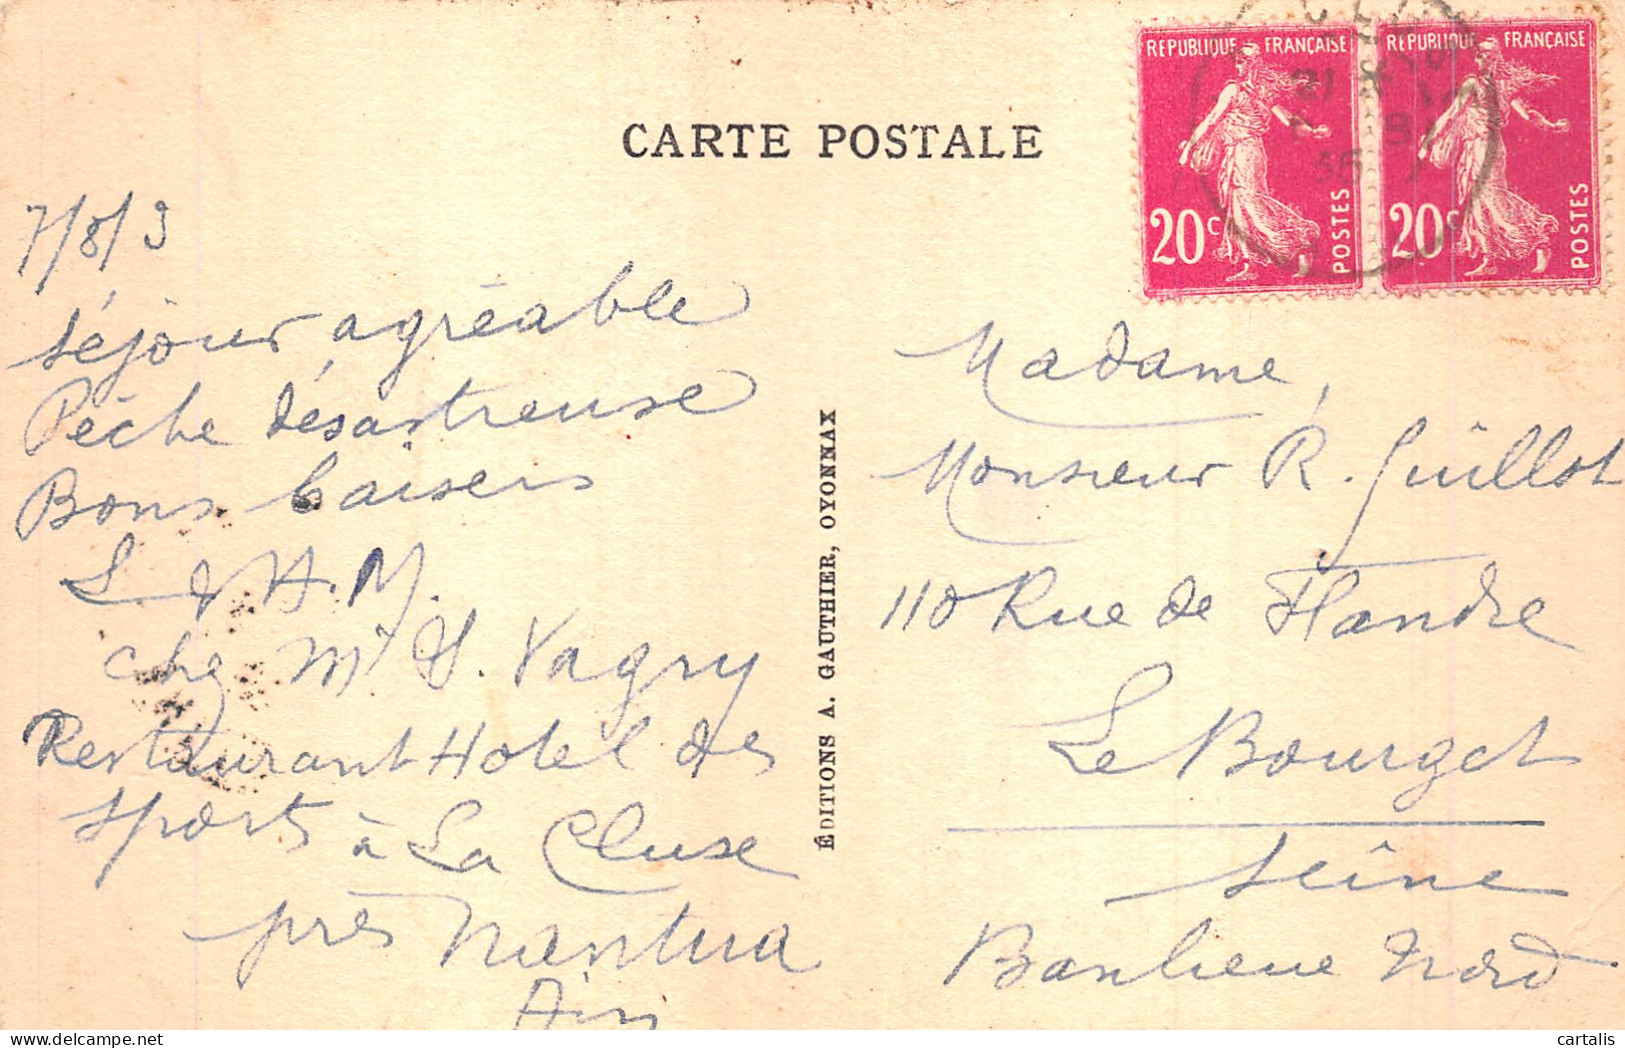 CARTE POSTALE
RÉPUBLIQUE FRANÇAISE
20c
POSTES
RÉPUBLIQUE FRANÇAISE
20c
POSTES
21
36
7/8/3
Séjour agréable
Pêche désastreuse
Bons baisers
L. & H. M.
chez Mr J. Vagry
Restaurant Hotel des
sports à La Cluse
près Nantua
Ain
ÉDITIONS A. GAUTHIER, OYONNAX
Madame,
Monsieur R. Guillot
110 Rue de Flandre
Le Bourget
Seine
Banlieue Nord
cartalis